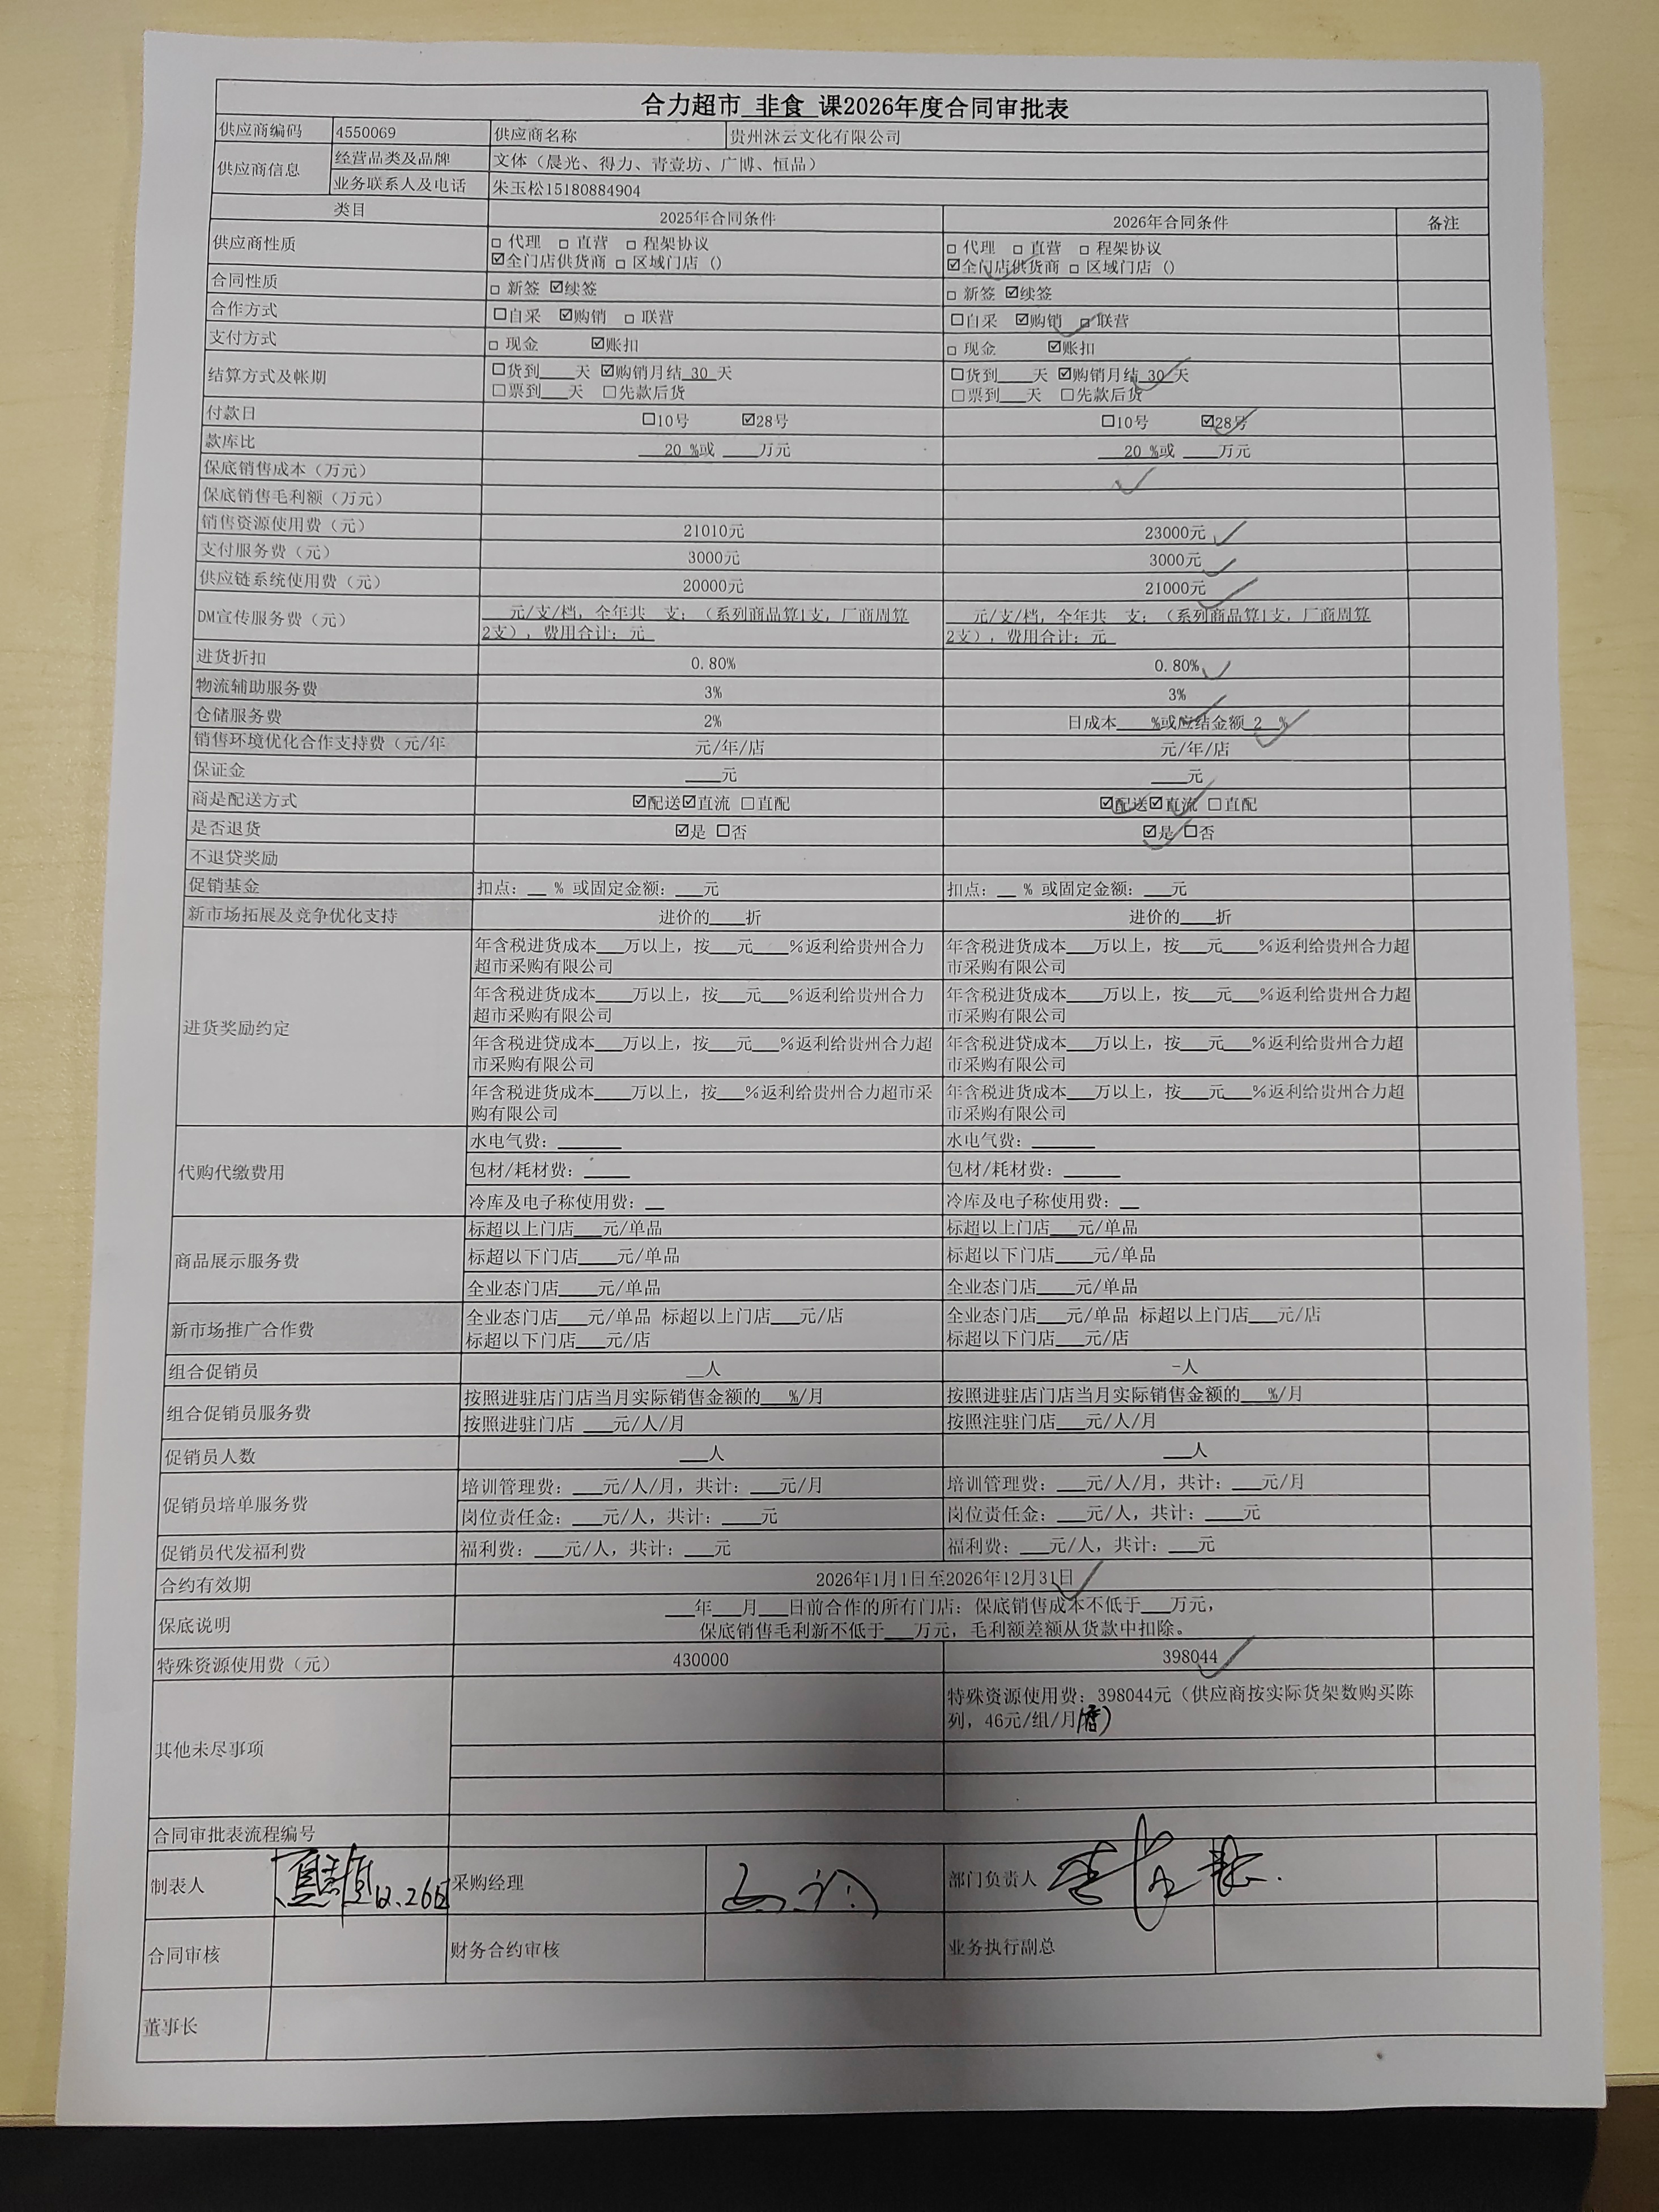 合力超市 非食 课2026年度合同审批表
供应商编码 4550069 供应商名称 贵州沐云文化有限公司
供应商信息 经营品类及品牌 文体（晨光、得力、青壹坊、广博、恒品）
业务联系人及电话 朱玉松15180884904
类目 2025年合同条件 2026年合同条件 备注
供应商性质 □ 代理 □ 直营 □ 程架协议 □ 代理 □ 直营 □ 程架协议
☑全门店供货商 □ 区域门店 () ☑全门店供货商 □ 区域门店 ()
合同性质 □ 新签 ☑续签 □ 新签 ☑续签
合作方式 □自采 ☑购销 □ 联营 □自采 ☑购销 □ 联营
支付方式 □ 现金 ☑账扣 □ 现金 ☑账扣
结算方式及帐期 □货到____天 ☑购销月结 30 天 □货到____天 ☑购销月结 30 天
□票到___天 □先款后货 □票到___天 □先款后货
付款日 □10号 ☑28号 □10号 ☑28号
款库比 20 %或 ____万元 20 %或 ____万元
保底销售成本（万元）
保底销售毛利额（万元）
销售资源使用费（元） 21010元 23000元
支付服务费（元） 3000元 3000元
供应链系统使用费（元） 20000元 21000元
DM宣传服务费（元） ___元/支/档，全年共__支；（系列商品算1支，厂商周算 ___元/支/档，全年共__支；（系列商品算1支，厂商周算
2支），费用合计：元 2支），费用合计：元
进货折扣 0.80% 0.80%
物流辅助服务费 3% 3%
仓储服务费 2% 日成本____%或应结金额 2 %
销售环境优化合作支持费（元/年 元/年/店 元/年/店
保证金 ____元 ____元
商是配送方式 ☑配送☑直流 □直配 ☑配送☑直流 □直配
是否退货 ☑是 □否 ☑是 □否
不退贷奖励
促销基金 扣点：__ % 或固定金额：___元 扣点：__ % 或固定金额：___元
新市场拓展及竞争优化支持 进价的____折 进价的____折
进货奖励约定 年含税进货成本___万以上，按___元____%返利给贵州合力 年含税进货成本___万以上，按___元___%返利给贵州合力超
超市采购有限公司 市采购有限公司
年含税进货成本____万以上，按___元___%返利给贵州合力 年含税进货成本___万以上，按___元___%返利给贵州合力超
超市采购有限公司 市采购有限公司
年含税进贷成本___万以上，按___元___%返利给贵州合力超 年含税进货成本___万以上，按___元___%返利给贵州合力超
市采购有限公司 市采购有限公司
年含税进货成本____万以上，按___%返利给贵州合力超市采 年含税进货成本___万以上，按___元___%返利给贵州合力超
购有限公司 市采购有限公司
代购代缴费用 水电气费：_______ 水电气费：_______
包材/耗材费：_____ 包材/耗材费：______
冷库及电子称使用费：__ 冷库及电子称使用费：__
商品展示服务费 标超以上门店___元/单品 标超以上门店___元/单品
标超以下门店____元/单品 标超以下门店____元/单品
全业态门店____元/单品 全业态门店____元/单品
新市场推广合作费 全业态门店___元/单品 标超以上门店___元/店 全业态门店____元/单品 标超以上门店___元/店
标超以下门店___元/店 标超以下门店___元/店
组合促销员 __人 -人
组合促销员服务费 按照进驻店门店当月实际销售金额的___%/月 按照进驻店门店当月实际销售金额的___%/月
按照进驻门店 ___元/人/月 按照注驻门店___元/人/月
促销员人数 ___人 ___人
促销员培单服务费 培训管理费：___元/人/月，共计：___元/月 培训管理费：___元/人/月，共计：___元/月
岗位责任金：___元/人，共计：____元 岗位责任金：___元/人，共计：____元
促销员代发福利费 福利费：___元/人，共计：___元 福利费：___元/人，共计：___元
合约有效期 2026年1月1日至2026年12月31日
保底说明 ___年___月___日前合作的所有门店：保底销售成本不低于___万元，
保底销售毛利新不低于___万元，毛利额差额从货款中扣除。
特殊资源使用费（元） 430000 398044
其他未尽事项 特殊资源使用费：398044元（供应商按实际货架数购买陈
列，46元/组/月)
合同审批表流程编号
制表人 12.26日 采购经理 部门负责人
合同审核 财务合约审核 业务执行副总
董事长